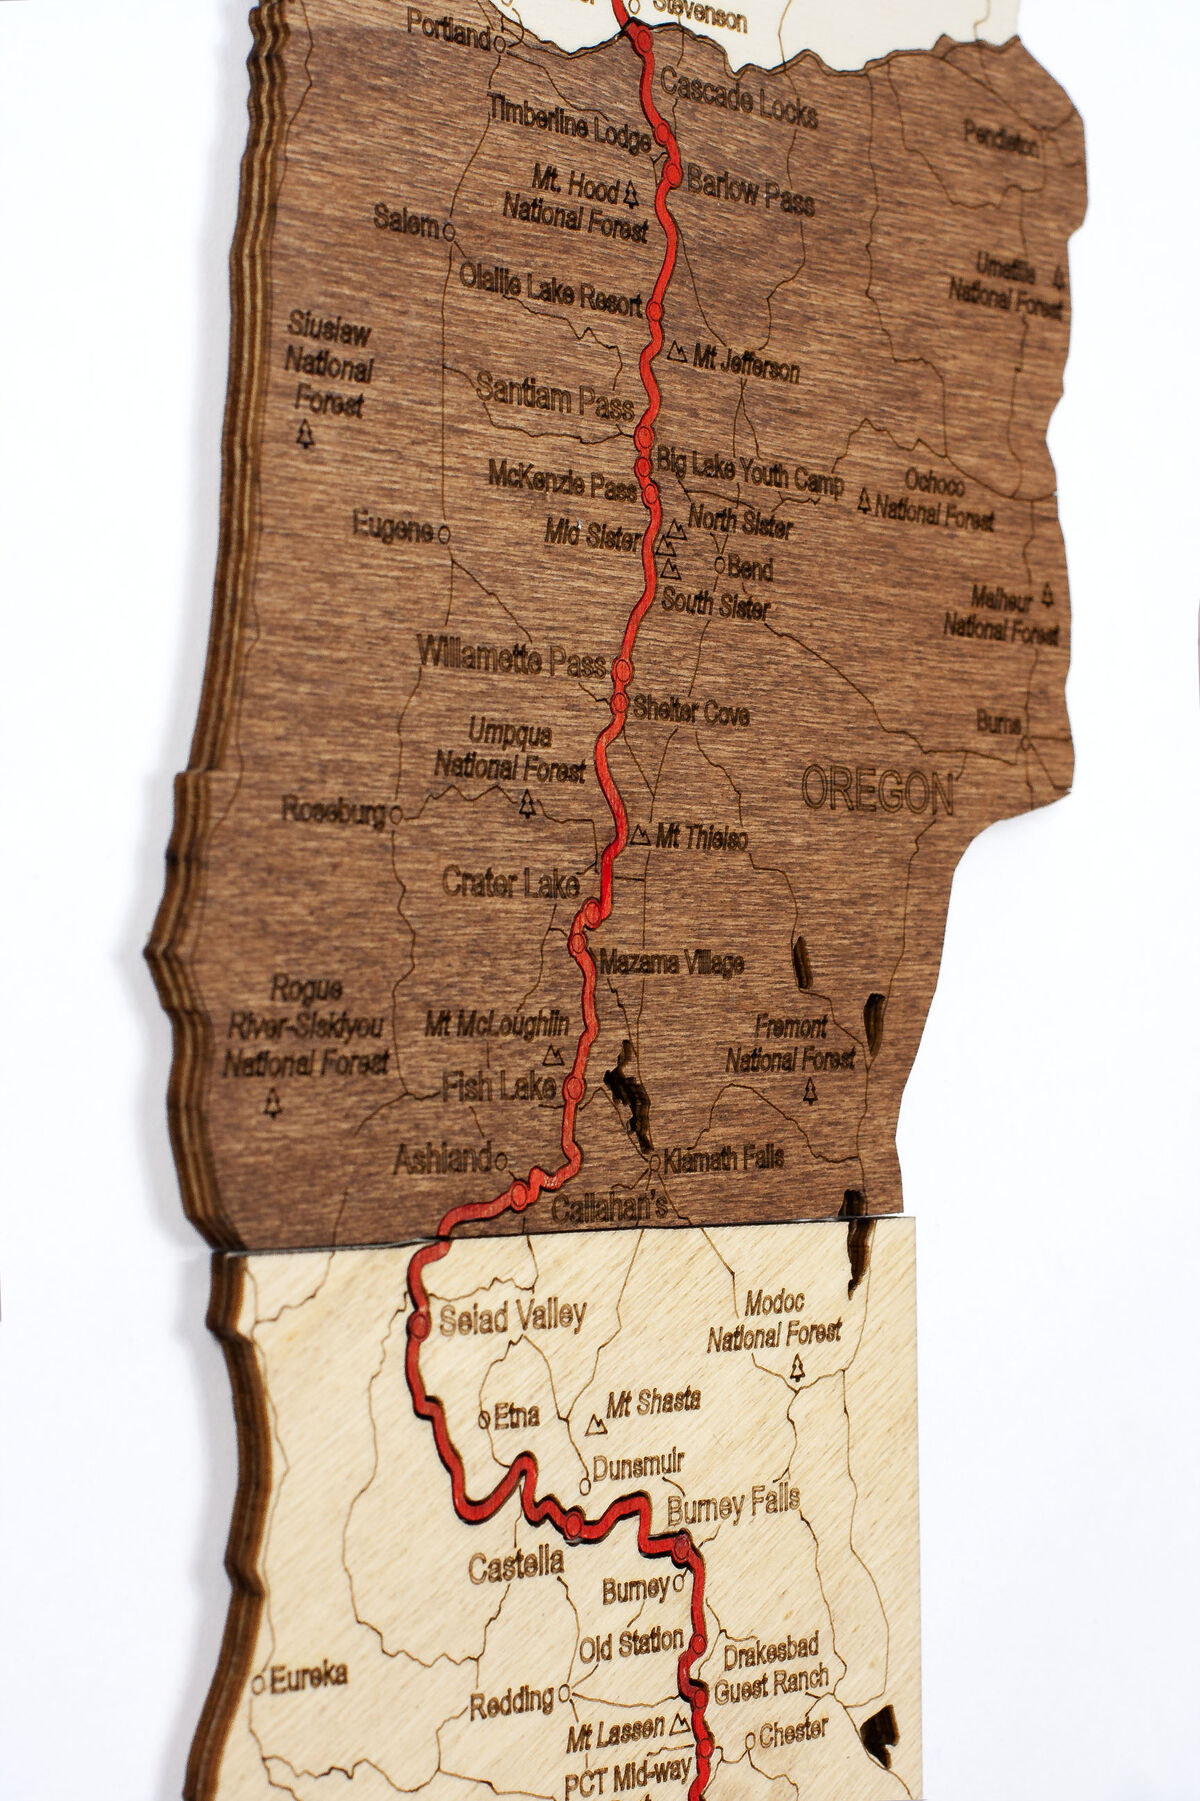 Stevenson
Portland
Cascade Locks
Timberline Lodge
Pendleton
Barlow Pass
Mt. Hood
National Forest
Salem
Umatilla
National Forest
Olallie Lake Resort
Siuslaw
National
Forest
Mt Jefferson
Santiam Pass
Big Lake Youth Camp
McKenzie Pass
Ochoco
National Forest
North Sister
Eugene
Mid Sister
Bend
South Sister
Malheur
National Forest
Willamette Pass
Shelter Cove
Burns
Umpqua
National Forest
OREGON
Roseburg
Mt Thielso
Crater Lake
Mazama Village
Rogue
River-Siskiyou
National Forest
Mt McLoughlin
Fremont
National Forest
Fish Lake
Ashland
Klamath Falls
Callahan's
Seiad Valley
Modoc
National Forest
Etna
Mt Shasta
Dunsmuir
Burney Falls
Castella
Burney
Old Station
Drakesbad
Guest Ranch
Eureka
Redding
Mt Lassen
Chester
PCT Mid-way